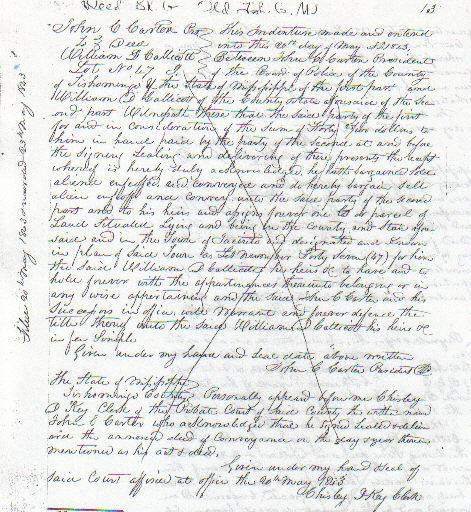 Deed Bk G Old Tish. Co. MS 13
John C Carter Pro This Indenture made and entered
To Deed into this 20th day of May AD 1853.
William D Callicott Between John C Carter President
Lot No 47 of the Board of Police of the County
of Tishomingo & the State of Mississippi of the first part and
William D Callicott of the County & State aforesaid of the Sec
ond part Witnesseth there that the said party of the first
for and in consideration of the Sum of Forty Two dollars to
him in hand paid by the party of the second at and before
the signing sealing and delivering of these presents the receipt
whereof is hereby duly acknowledged, he hath bargained Sold
aliened enfeoffed and conveyed and do hereby bargain Sell
alien enfeoff and convey unto the said party of the second
part and to his heirs and assigns forever one lot or parcel of
Land Situated Lying and being in the County and State afore
said and in the Town of Jacinto and designated and known
in plan of Said Town as Lot Number Forty Seven (47) for him
the said William D Callicott his heirs &c to have and to
hold forever with the appurtenances thereunto belonging or in
any wise appertaining and the said John C Carter and his
Successors in office will Warrant and forever defend the
title thereof unto the said William D Callicott his heirs &c
in fee Simple
Given under my hand and Seal date above written
John C Carter President
The State of Mississippi
Tishomingo County Personally appeared before me Chisley
D Key Clerk of the Probate Court of said County the within named
John C Carter who acknowledged that he signed sealed & deliv
ered the annexed deed of Conveyance on the day & year therein
mentioned as his act & deed.
Given under my hand & Seal of
said Court affixed at office the 20th May 1853
Chisley D Key Clerk
Filed 20th May 1853 & recorded 23rd May 1853